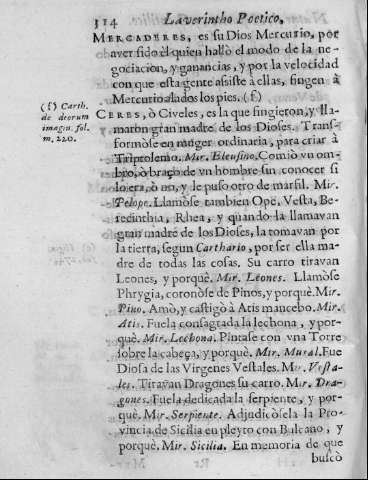 114 Laverintho Poetico,
MERCADERES, es su Dios Mercurio, por
aver sido el quien hallò el modo de la ne-
gociacion, y ganancias, y por la velocidad
con que esta gente asiste à ellas, fingen à
Mercurio alados los pies. (f)
(f) Carth.
de deorum
imagin. fol.
m. 220.
CERES, ò Civeles, es la que fingieron, y lla-
maron gran madre de los Dioses. Trans-
formòse en muger ordinaria, para criar à
Triptolemo. Mir. Eleusino. Comiò vn om-
bro, ò braço de vn hombre sin conocer si
lo era, ò no, y le puso otro de marfil. Mir.
Pelope. Llamòse tambien Ope, Vesta, Be-
recinthia, Rhea, y quando la llamavan
gran madre de los Dioses, la tomavan por
la tierra, segun Carthario, por ser ella ma-
dre de todas las cosas. Su carro tiravan
Leones, y porquè. Mir. Leones. Llamòse
Phrygia, coronòse de Pinos, y porquè. Mir.
Pino. Amò, y castigò à Atis mancebo. Mir.
Atis. Fuela consagtada la lechona, y por-
què. Mir. Lechona. Pintase con vna Torre
sobre la cabeça, y porquè. Mir. Mural. Fue
Diosa de las Virgenes Vestales. Mir. Vesta-
les. Tiravan Dragones su carro. Mir. Dra-
gones. Fuela dedicada la serpiente, y por-
què. Mir. Serpiente. Adjudicòsela la Pro-
vincia de Sicilia en pleyto con Bulcano, y
porquè. Mir. Sicilia. En memoria de que
buscò